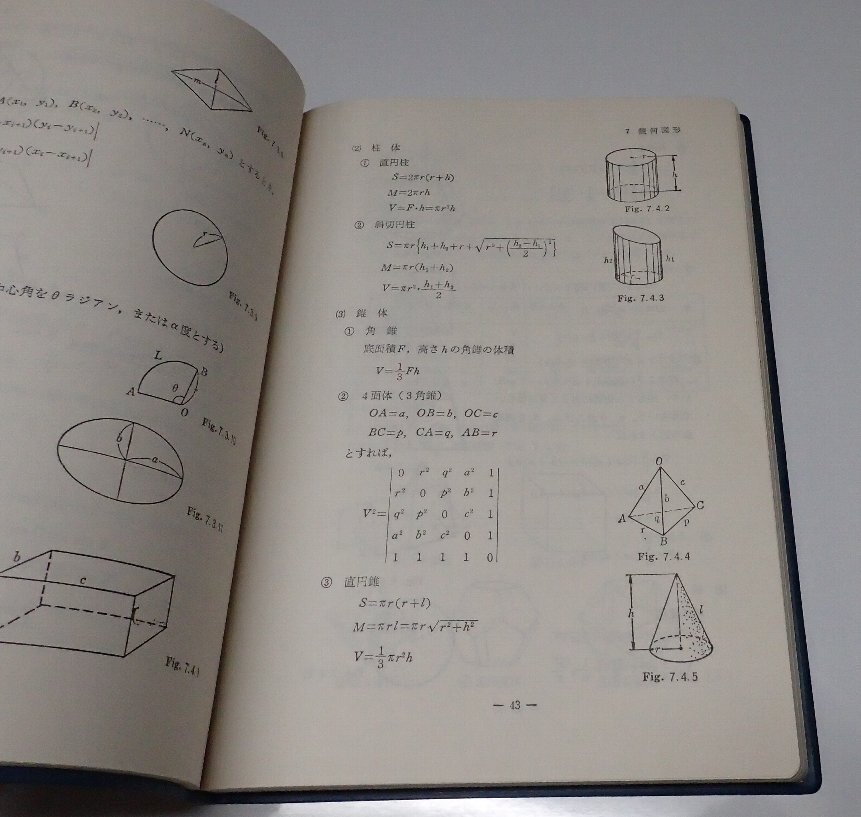 m
A(x₁, y₁), B(x₂, y₂), ……, N(xₙ, yₙ) とするとき,
xᵢ₊₁)(yᵢ−yᵢ₊₁)|
yᵢ₊₁)(xᵢ−xᵢ₊₁)|
r
中心角をθラジアン, またはα度とする)
L
B
θ
r
A
O
Fig. 7.3.10
b
a
Fig. 7.3.11
b
c
Fig. 7.4.1
7. 幾何図形
(2) 柱 体
① 直円柱
S=2πr(r+h)
M=2πrh
V=F·h=πr²h
r
h
Fig. 7.4.2
② 斜切円柱
S=πr{h₁+h₂+r+√(r²+((h₂−h₁)/2)²)}
M=πr(h₁+h₂)
V=πr²·(h₁+h₂)/2
h₂
h₁
Fig. 7.4.3
(3) 錐 体
① 角 錐
底面積F, 高さhの角錐の体積
V=1/3 Fh
② 4面体 (3角錐)
OA=a, OB=b, OC=c
BC=p, CA=q, AB=r
とすれば,
V²=
0 r² q² a² 1
r² 0 p² b² 1
q² p² 0 c² 1
a² b² c² 0 1
1 1 1 1 0
O
a
c
b
A
C
q
r
p
B
Fig. 7.4.4
③ 直円錐
S=πr(r+l)
M=πrl=πr√(r²+h²)
V=1/3 πr²h
h
l
r
Fig. 7.4.5
— 43 —